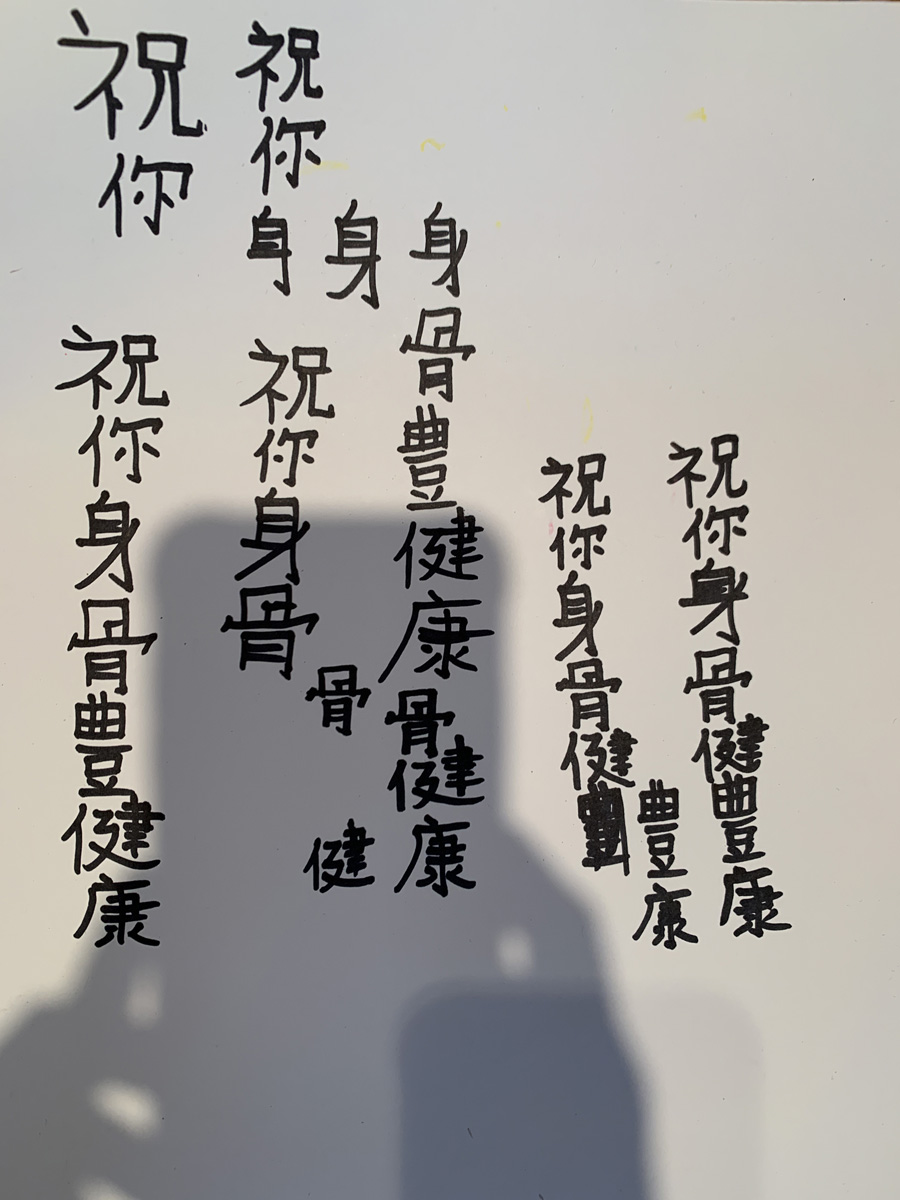 祝你
祝你身
身
身骨豊健康
骨健康
祝你身骨豊健康
祝你身骨
骨
健
祝你身骨健
豊康
祝你身骨健豊康